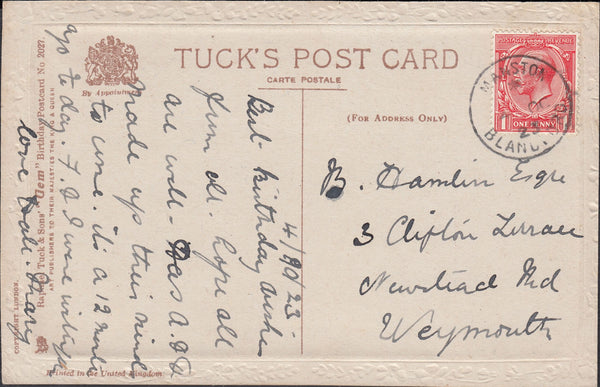 TUCK'S POST CARD
CARTE POSTALE
By Appointment
(FOR ADDRESS ONLY)
POSTAGE REVENUE
1 ONE PENNY 1
MANSTON
BLANDFORD
B. Hamlin Esqre
3 Clifton Terrace
Newstead Rd
Weymouth
4/90/23
Best birthday wishes
from all. hope all
are well - Has A.
made up their mind
to come. it's a 12
to day. F. & I were
love
COPYRIGHT LONDON.
Raphael Tuck & Sons' "Gem" Birthday Postcard No. 2027.
ART PUBLISHERS TO THEIR MAJESTIES THE KING & QUEEN
Printed in the United Kingdom.